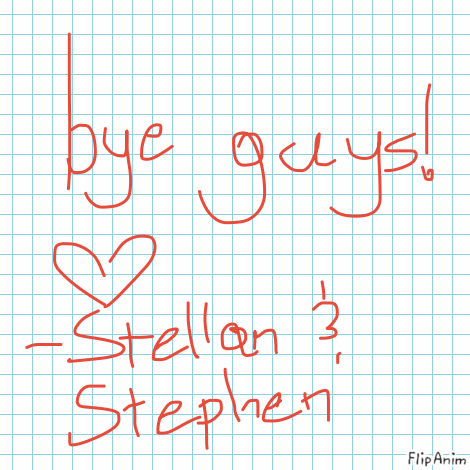 bye guys!
-Stellan &
Stephen
FlipAnim